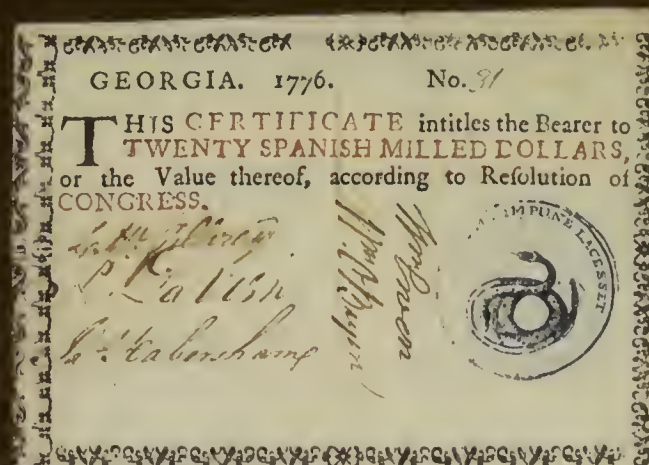 GEORGIA. 1776. No. 91
THIS CERTIFICATE intitles the Bearer to
TWENTY SPANISH MILLED DOLLARS,
or the Value thereof, according to Reſolution of
CONGRESS.
IMPUNE LACESSET
Habersham